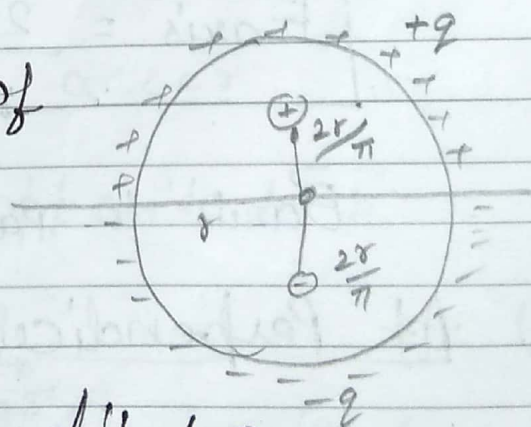 +q
of
+ + + + + + + + + +
⊕
2r/π
r
⊖
2r/π
- - - - - - - - - - - -
-q